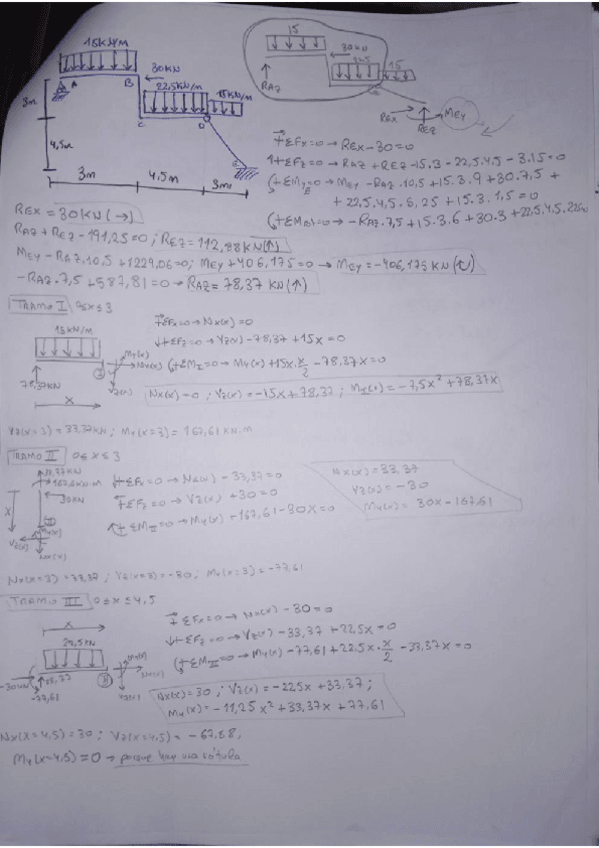 15KN/M
30KN
22,5KN/M
15KN/M
A
B
C
D
E
3m
4,5m
3m
4,5m
3m
15
30KN
22,5
15
RAZ
REX
REZ
MEY
+ΣFx=0 → REX-30=0
+ΣFz=0 → RAZ + REZ -15.3 - 22,5.4,5 - 3.15=0
+ΣMy=0 → MEY - RAZ.10,5 + 15.3.9 + 30.7,5 +
+ 22,5.4,5.5,25 + 15.3.1,5 = 0
→ -RAZ.7,5 + 15.3.6 + 30.3 + 22,5.4,5.2,25=0
REX = 30KN (→)
RAZ + REZ - 191,25=0 ; REZ = 112,88KN(↑)
MEY - RAZ.10,5 + 1229,06=0; MEY + 406,175=0 → MEY = -406,175 KN
-RAZ.7,5 + 587,81=0 → RAZ = 78,37 KN(↑)
TRAMO I 0≤x≤3
15KN/M
78,37KN
x
My(x)
Nx(x)
Vz(x)
+ΣFx=0 → Nx(x)=0
+ΣFz=0 → Vz(x)-78,37+15x=0
+ΣMI=0 → My(x)+15x.x/2 -78,37x=0
Nx(x)=0 ; Vz(x)=-15x+78,37 ; My(x)=-7,5x²+78,37x
Vz(x=3)=33,37KN ; My(x=3)=167,61 KN.m
TRAMO II 0≤x≤3
33,37KN
167,61KN.m
30KN
x
My(x)
Vz(x)
Nx(x)
+ΣFx=0 → Nx(x)-33,37=0
+ΣFz=0 → Vz(x)+30=0
+ΣMII=0 → My(x)+167,61-30x=0
Nx(x)=33,37
Vz(x)=-30
My(x)= 30x-167,61
Nx(x=3)=33,37 ; Vz(x=3)=-30 ; My(x=3)=-77,61
TRAMO III 0≤x≤4,5
x
22,5KN
-30KN
33,37
-77,61
My(x)
Nx(x)
Vz(x)
+ΣFx=0 → Nx(x)-30=0
+ΣFz=0 → Vz(x)-33,37+22,5x=0
+ΣMIII=0 → My(x)-77,61+22,5x.x/2 -33,37x=0
Nx(x)=30 ; Vz(x)=-22,5x+33,37 ;
My(x)=-11,25x²+33,37x+77,61
Nx(x=4,5)=30 ; Vz(x=4,5)=-67,88,
My(x=4,5)=0 → porque hay una rótula